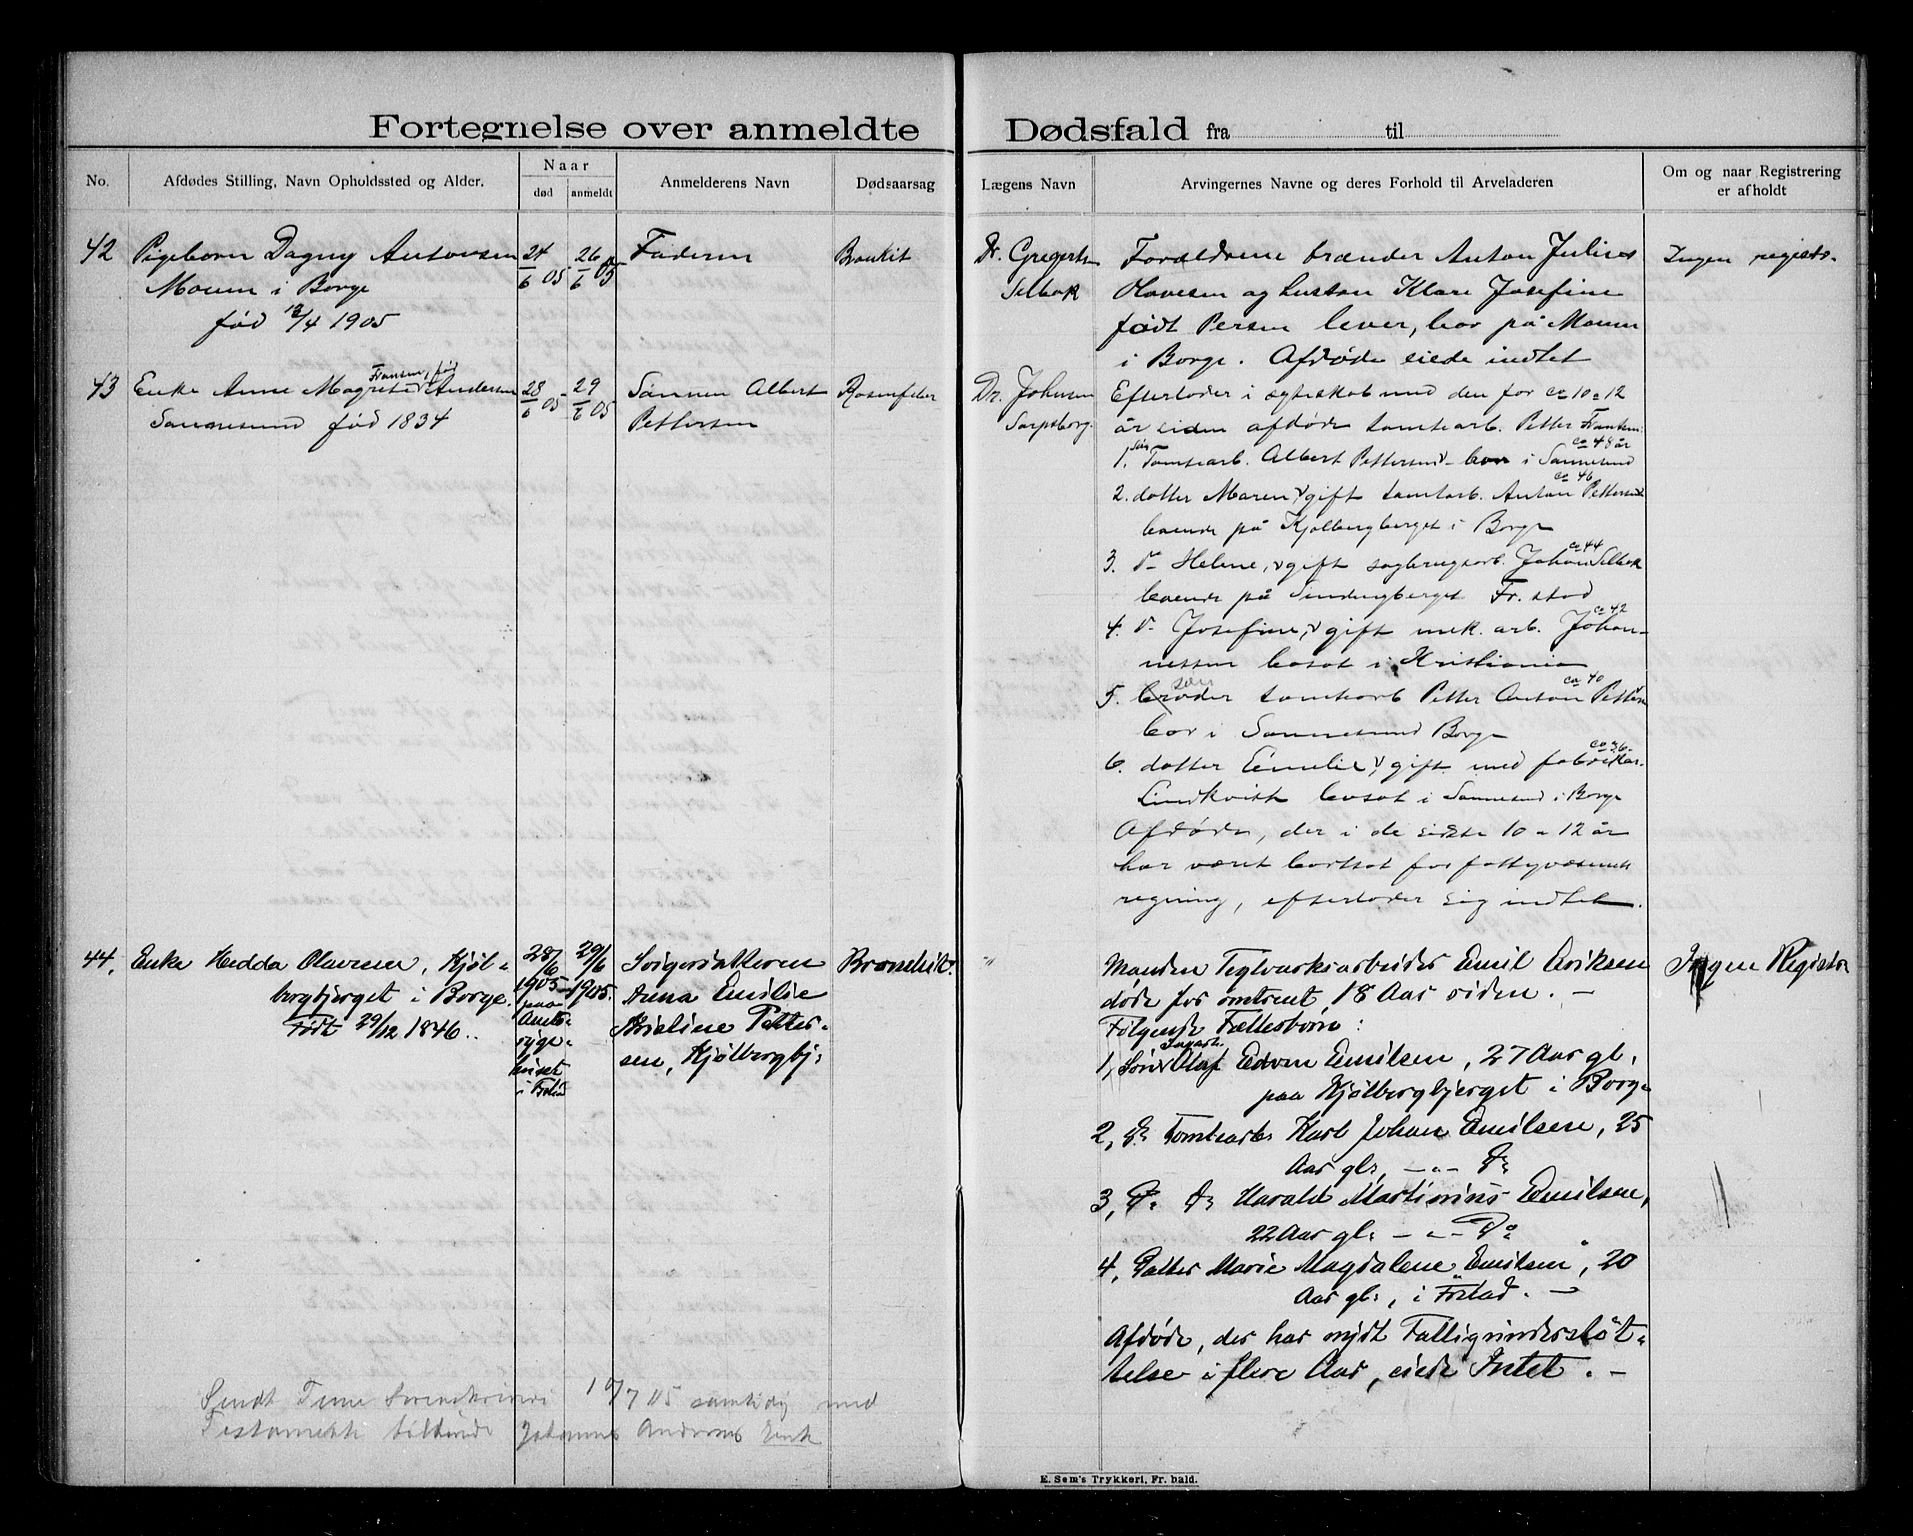 Fortegnelse over anmeldte Dødsfald fra til
No.
Afdødes Stilling, Navn Opholdssted og Alder.
Naar
død
anmeldt
Anmelderens Navn
Dødsaarsag
Lægens Navn
Arvingernes Navne og deres Forhold til Arveladeren
Om og naar Registrering
er afholdt
42
Pigebarn Dagny Antonsen
Moum i Borge
født 12/4 1905
24/6 05
26/6 05
Faderen
Bronkit
Dr. Gregerts
Selbak
Forældrene brænder Anton Julius
Olavesen og hustru Klara Josefine
født Persen lever, bor på Moum
i Borge. Afdøde eiede indtet
Ingen registr.
43
Enke Anne Magrete Andersen
Fransen, født
Sannesund født 1834
28/6 05
29/6 05
Sønnen Albert
Pettersen
Rosenfeber
Dr. Johnsen
Sarpsborg.
Efterlader i egteskab med den for ca 10 a 12
år siden afdøde tomtearb. Petter Fransen:
1. Søn Tomtearb. Albert Pettersen ca 48 år bor i Sannesund
2. datter Maren, gift tomtearb. Anton Pettersen ca 46
boende på Kjølbergberget i Borge
3. do Helene, gift sagbrugsarb. Johan Selbak ca 44
boende på Fr.stad
4. do Josefine, gift mek. arb. Johan- ca 42
nessen bosat i Kristiania
5. broder søn tomtearb Petter Anton Petters ca 40
bor i Sannesund Borge
6. datter Emelie, gift med fabrikar. ca 36
Lindkvist bosat i Sannesund i Borge
Afdøde, der i de sidste 10 a 12 år
har været bortsat for fattigvæsenets
regning, efterlader sig indtet.
44,
Enke Hedda Olavesen, Kjøl-
bergbjerget i Borge.
Født 29/12 1846.
28/6
1905
paa
Amts-
syge-
huset
i F.stad
29/6
1905.
Svigerdatteren
Anna Emilie
Kristine Petter-
sen, Kjølbergbj:
"
Manden Teglverksarbeider Emil Eriksen
døde for omtrent 18 Aar siden. -
Følgende Fællesbørn:
1, Søn Sagarb. Olaf Edvin Emilsen, 27 Aar gl.
paa Kjølbergbjerget i Borge
2, Do Tomtearb: Karl Johan Emilsen, 25
Aar gl:, - " - Do
3, Do Do Harald Martinius Emilsen,
22 Aar gl: - " - Do
4, Datter Marie Magdalene Emilsen, 20
Aar gl:, i F.stad. -
Afdøde, der har nydt Fattigunderstøt-
telse i flere Aar, eiede Intet. -
Ingen Registr
Sendt 10/7 05 samtidig med
Johannes Andersens Enke
E. Sem's Trykkeri, Fr. hald.